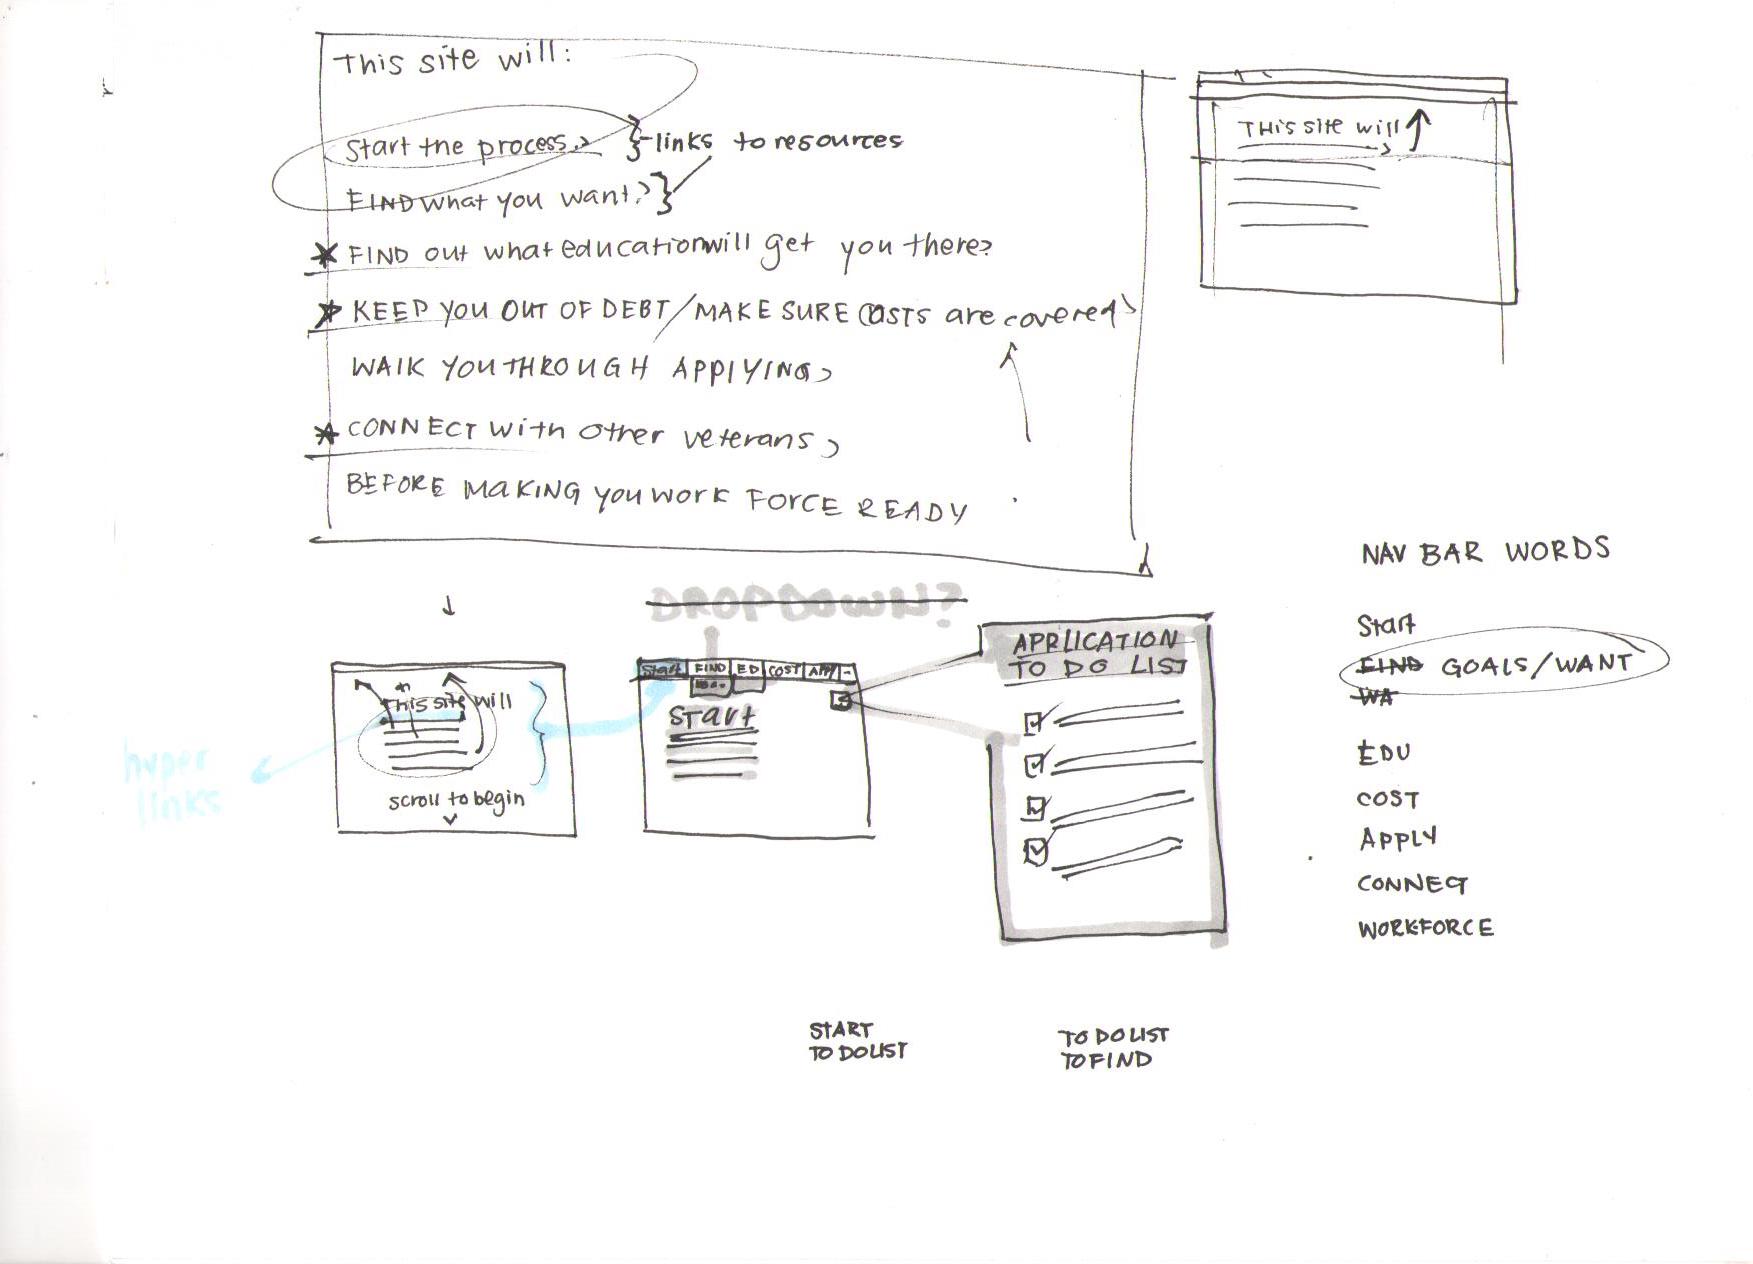 This site will:
Start the process,
links to resources
FIND what you want?
FIND out what education will get you there?
KEEP YOU OUT OF DEBT/MAKE SURE COSTS are covered
WALK YOU THROUGH APPLYING,
CONNECT with other veterans,
BEFORE MAKING YOU WORK FORCE READY
THis site will
NAV BAR WORDS
Start
FIND GOALS/WANT
WA
EDU
COST
APPLY
CONNECT
WORKFORCE
DROPDOWN?
This site will
scroll to begin
hyper
links
Start FIND ED COST APP -
Start
APPLICATION
TO DO LIST
START
TO DO LIST
TO DO LIST
TO FIND